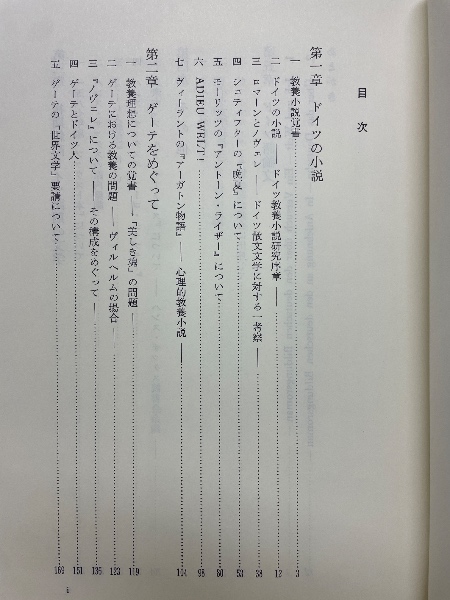 目次
第一章 ドイツの小説
一 教養小説覚書 3
二 ドイツの小説 ―― ドイツ教養小説研究序章 ―― 12
三 ロマーンとノヴェレ ―― ドイツ散文文学に対する一考察 ―― 38
四 シュティフターの『晩夏』について 53
五 モーリッツの『アントーン・ライザー』について 80
六 ADIEU WELT! 98
七 ヴィーラントの『アーガトン物語』 ―― 心理的教養小説 ―― 104
第二章 ゲーテをめぐって
一 教養理想についての覚書 ―― 『美しき魂』の問題 119
二 ゲーテにおける教養の問題 ―― ヴィルヘルムの場合 123
三 『ノヴェレ』について ―― その構成をめぐって ―― 135
四 ゲーテとドイツ人 151
五 ゲーテの「世界文学」要請について 169
6